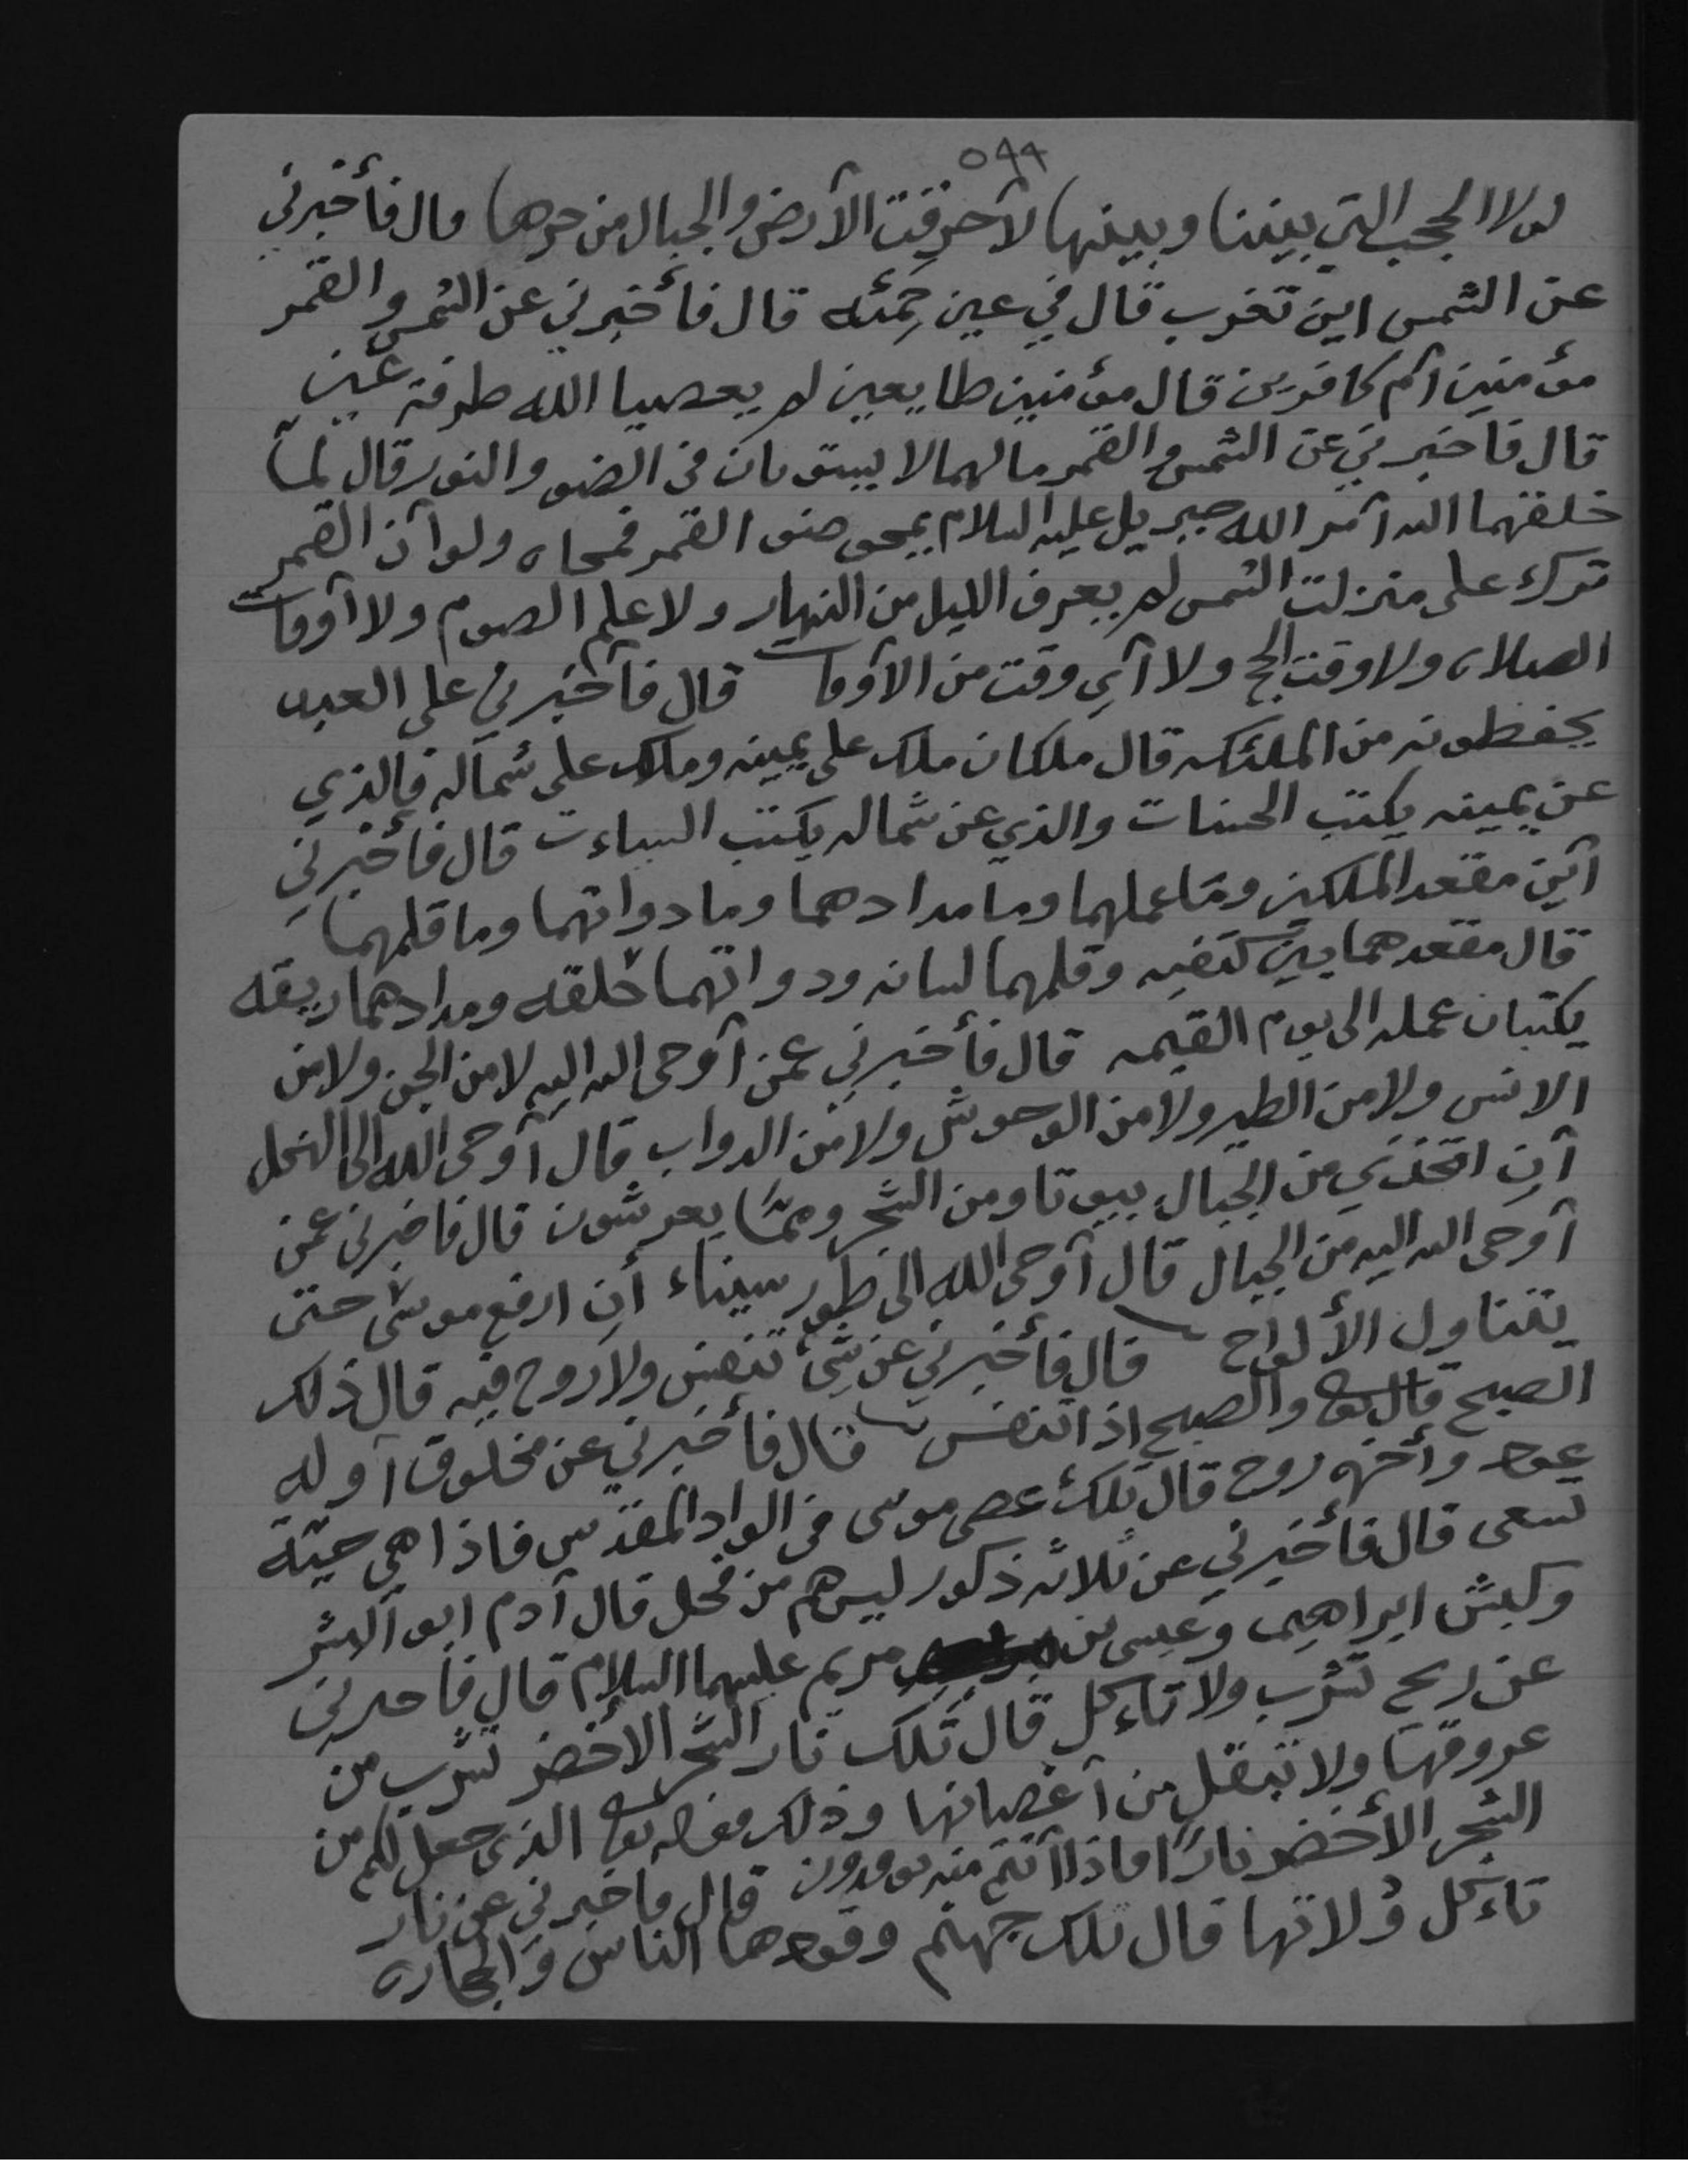 ٥٩٩
لولا الحجب التي بيننا وبينها لآحرقت الآرض والجبال من حرها قال فأخبرني
عن الشمس اين تغرب قال في عين حمئه قال فأخبرني عن الشمس والقمر
مؤمنين آم كافرين قال مؤمنين طايعين لم يعصيا الله طرفة عين
قال فآخبرني عن الشمس والقمر مالهما لا يستويان في الضو والنور قال لما
خلقهما الله آمر الله جبريل عليه السلام يمحى ضو القمر فمحاه ولوآن القمر
ترك على منزلت الشمس لم يعرف الليل من النهار ولا علم الصوم ولا آوقات
الصلاه ولا وقت الحج ولا آي وقت من الآوقات قال فآخبرني على العبد
يحفظونه من الملئكه قال ملكان ملك على يمينه وملك على شماله فالذي
عن يمينه يكتب الحسنات والذي عن شماله يكتب السياءت قال فأخبرني
آين مقعد الملكين وما عملهما وما مدادهما وما دواتهما وما قلمهما
قال مقعدهما بين كتفيه وقلمهما لسانه ودواتهما حلقه ومدادهما ريقه
يكتبان عمله الى يوم القيمه قال فأخبرني عمن آوحى الله اليه لا من الجن ولا من
الانس ولا من الطير ولا من الوحوش ولا من الدواب قال آوحى الله الى النحل
آن اتخذي من الجبال بيوتا ومن الشجر ومما يعرشون قال فاخبرني عمن
آوحى الله اليه من الجبال قال آوحى الله الى طور سيناء أن ارفع موسى حتى
يتناول الألواح قال فأخبرني عن شئ تنفس ولا روح فيه قال ذلك
الصبح قال تعا والصبح اذا تنفس قال فأخبرني عن مخلوق آوله
عود وأخره روح قال تلك عصى موسى في الواد المقدس فاذا هي حية
تسعى قال فأخبرني عن ثلاثه ذكور ليس هم من فحل قال آدم ابو آلبشر
وكبش ابراهيم وعيسى بن مريم عليهما السلام قال فآخبرني
عن ريح تشرب ولا تاءكل قال تلك نار الشجر الاخضر تشرب من
عروقها ولا تنتقل من آغصانها وذلك قوله تعا الذي جعل لكم من
الشجر الأخضر نارًا فاذا آنتم منه توقدون قال فاخبرني عن نار
تاءكل ولا تها قال تلك جهنم وقودها الناس والحجاره